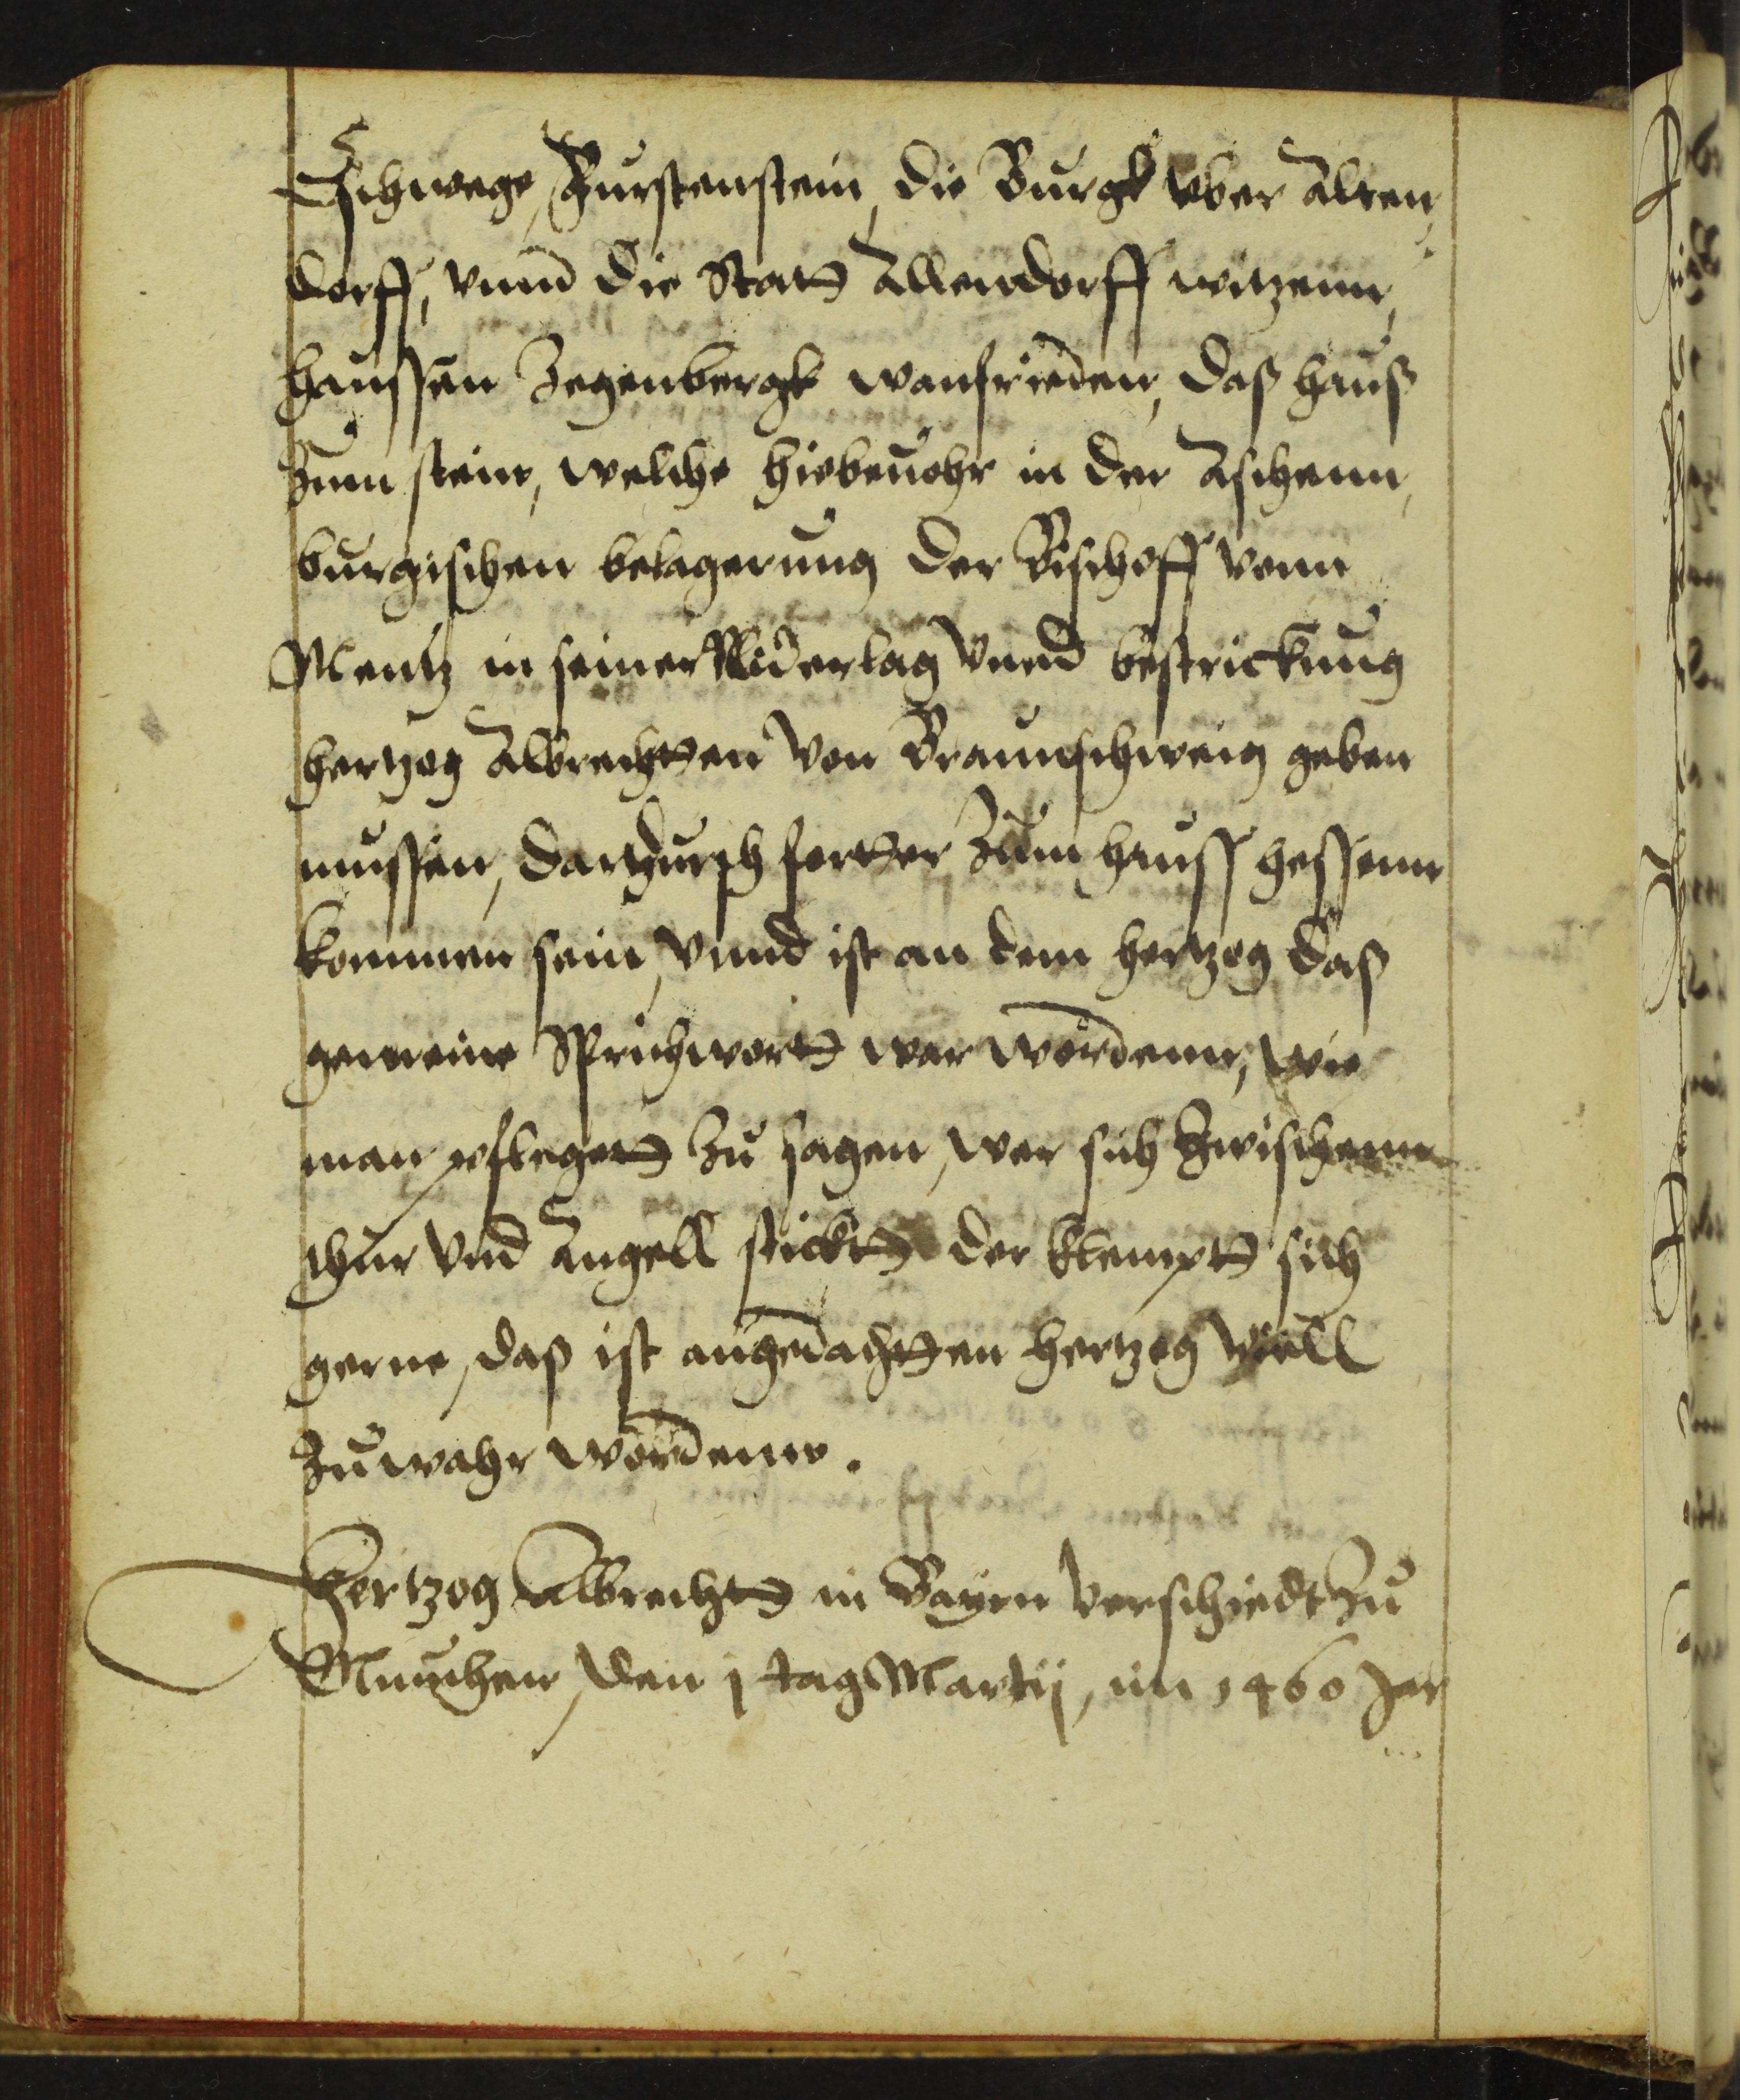 Eschwege, Furstenstein, die Burgk vber Alten,
dorff, vnnd die Stat Allendorff witzenn,
haussen Zegenbergk wanfrieden, daß hauß
Zum stein, welche hiebeuohr in der Aschenn,
burgischen belagerung der Bischoff vonn
Mentz in seiner Niderlag vnnd bestrickung
hertzog Albrechten von Braunschweig geben
mussen, dardurch forter Zum hauss hessenn
kommen sein, vnnd ist an dem hertzog daß
gemeine Sprichwort war wordenn, wie
man pfleget zu sagen, wer sich Zwischenn
thur vnd Angell stickt der klempt sich
gerne, daß ist angedachten hertzog woll
Zuwahr wordenn.
Hertzog Albrecht in Bayrn verschiedt Zu
Munchen, den j tag Martij, im 1460 Jar